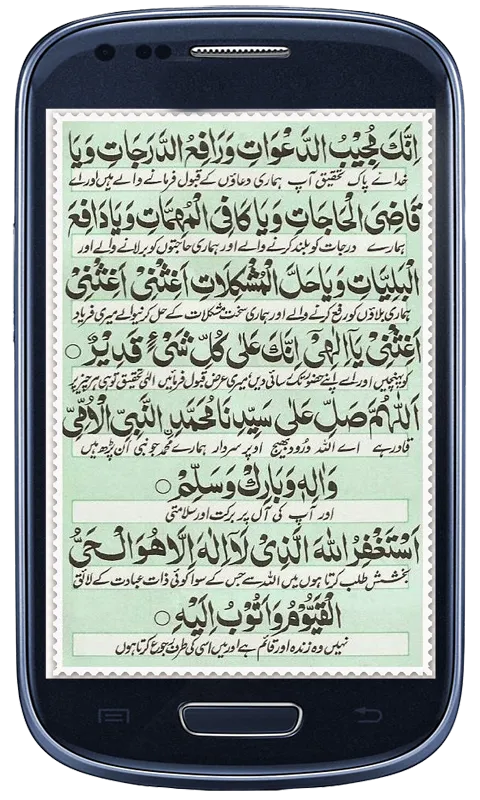 اِنَّكَ مُجِيْبُ الدَّعْوَاتِ وَرَافِعُ الدَّرَجَاتِ وَيَا
خدائے پاک تحقیق آپ ہماری دعاؤں کے قبول فرمانے والے ہیں اور اے
قَاضِىَ الْحَاجَاتِ وَيَا كَافِىَ الْمُهِمَّاتِ وَيَا دَافِعَ
ہمارے درجات کو بلند کرنے والے اور ہماری حاجتوں کو برلانے والے اور
الْبَلِيَّاتِ وَيَا حَلَّ الْمُشْكِلَاتِ اَغِثْنِىْ اَغِثْنِىْ
ہماری بلاؤں کو رفع کرنے والے اور ہماری سخت مشکلات کے حل کرنیوالے میری فریاد
اَغِثْنِىْ يَآ اِلٰهِىْ اِنَّكَ عَلٰى كُلِّ شَىْءٍ قَدِيْرٌ ○
کو پہنچیں اور اے اپنے حضور تک رسائی دیں میری عرض قبول فرمائیں الٰہی تحقیق تو ہی ہر چیز پر
اَللّٰهُمَّ صَلِّ عَلٰى سَيِّدِنَا مُحَمَّدِنِ النَّبِىِّ الْاُمِّىِّ
قادر ہے اے اللہ درود بھیج اوپر سردار ہمارے محمدؐ جو نبی ان پڑھ ہیں
وَاٰلِهٖ وَبَارِكْ وَسَلِّمْ ○
اور آپ کی آل پر برکت اور سلامتی
اَسْتَغْفِرُ اللّٰهَ الَّذِىْ لَآ اِلٰهَ اِلَّا هُوَ الْحَىُّ
بخشش طلب کرتا ہوں میں اللہ سے جس کے سوا کوئی ذات عبادت کے لائق
الْقَيُّوْمُ وَاَتُوْبُ اِلَيْهِ ○
نہیں وہ زندہ اور قائم ہے اور میں اسی کی طرف رجوع کرتا ہوں